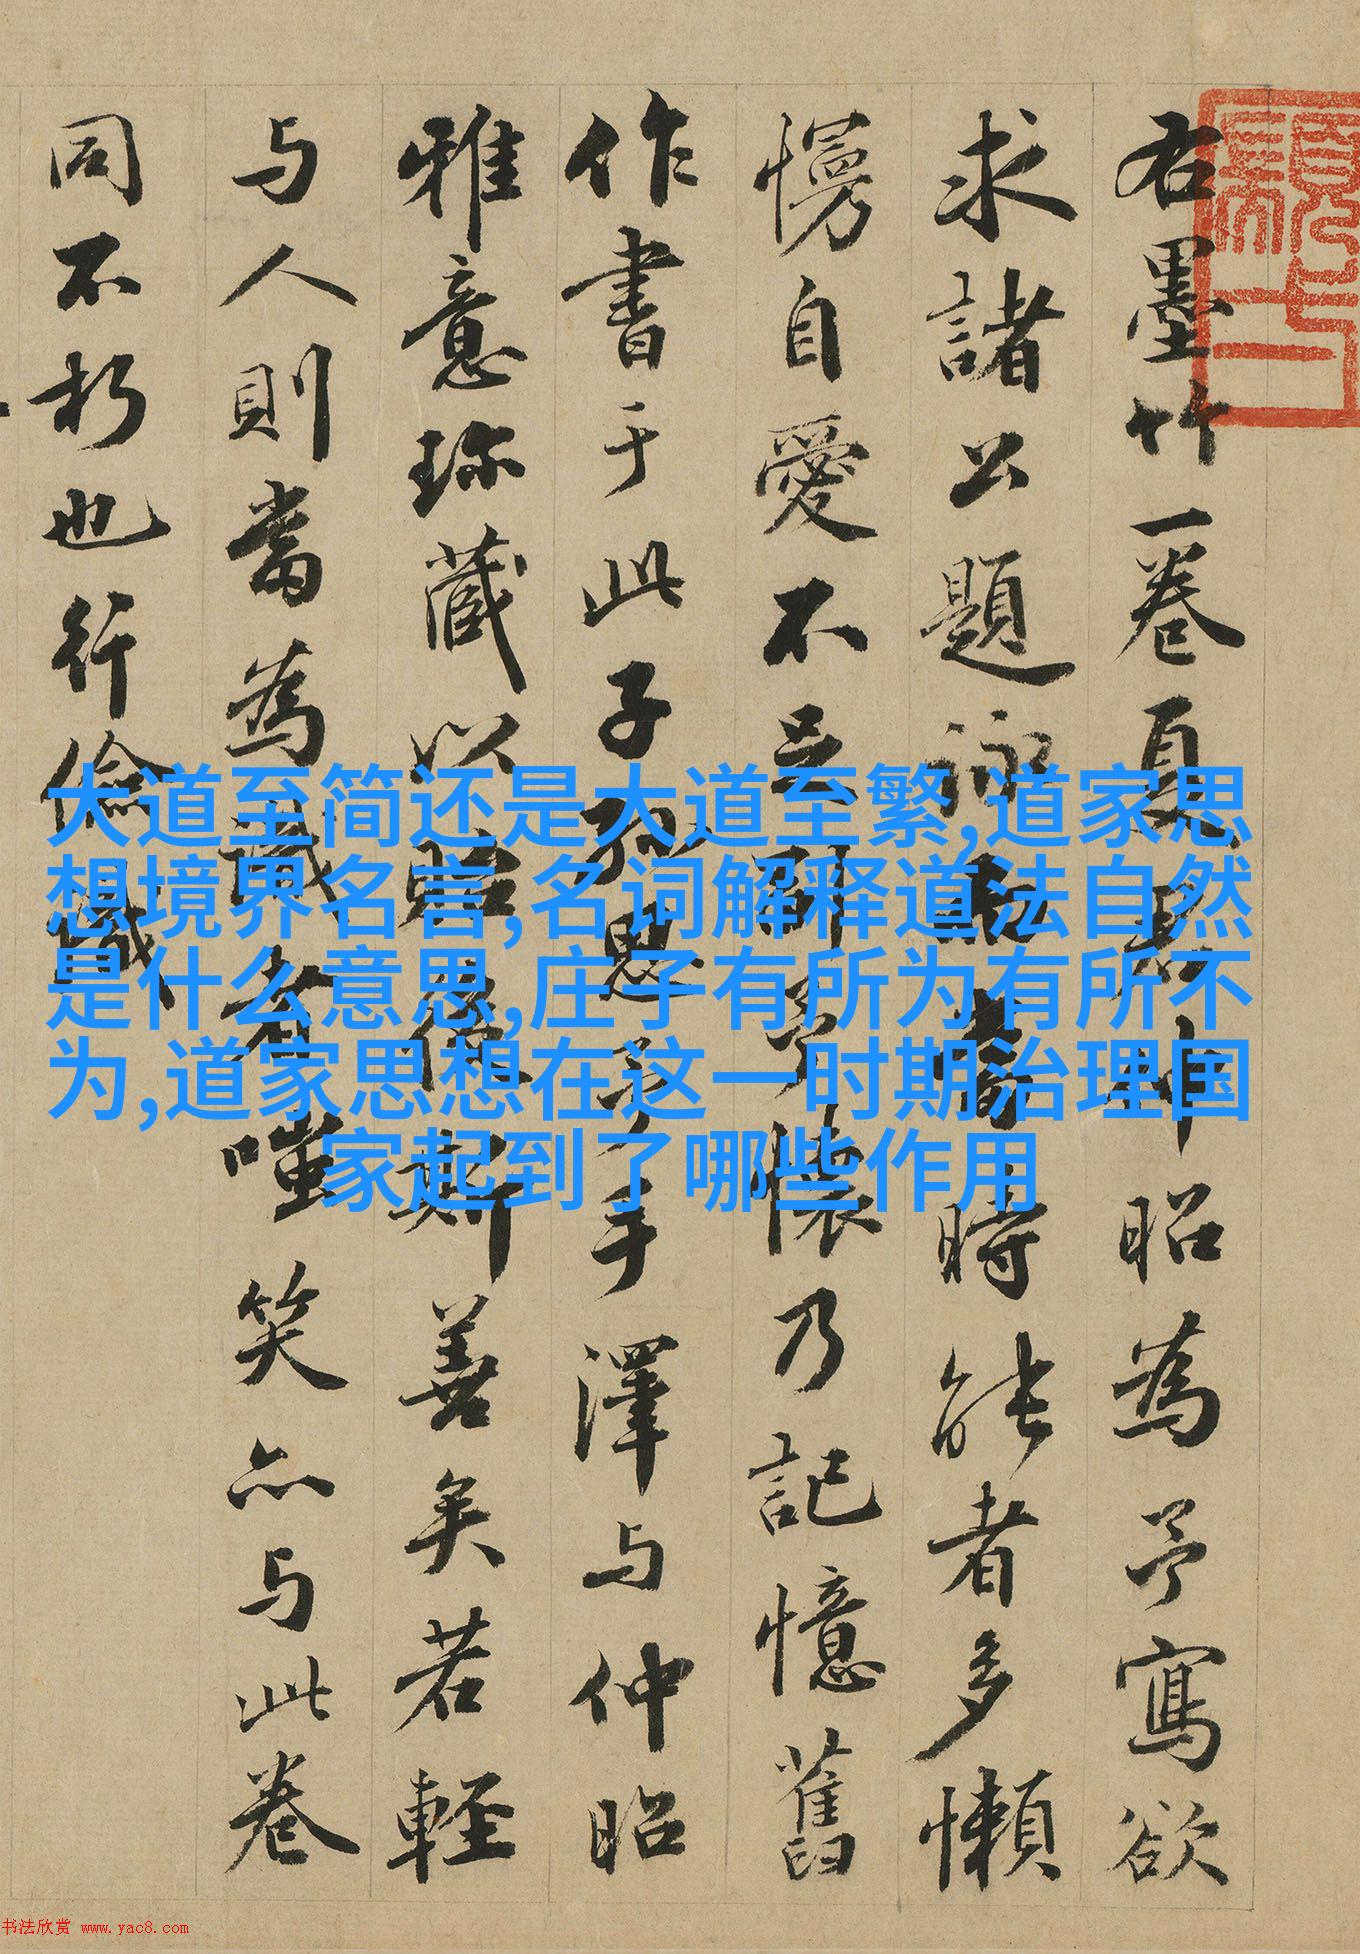 右墨竹一卷夏君仲昭為予寫欲
求諸公題詠時能者多懶
慢自愛不予懷乃記憶舊
作書于此子孫思予手澤与仲昭
雅意珍藏以貽斯善矣若輕
与人則當為識者嗤笑亦与此卷
同不朽也行儉識
大道至简还是大道至繁,道家思
想境界名言,名词解释道法自然
是什么意思,庄子有所为有所不
为,道家思想在这一时期治理国
家起到了哪些作用
书法欣赏 www.yac8.com